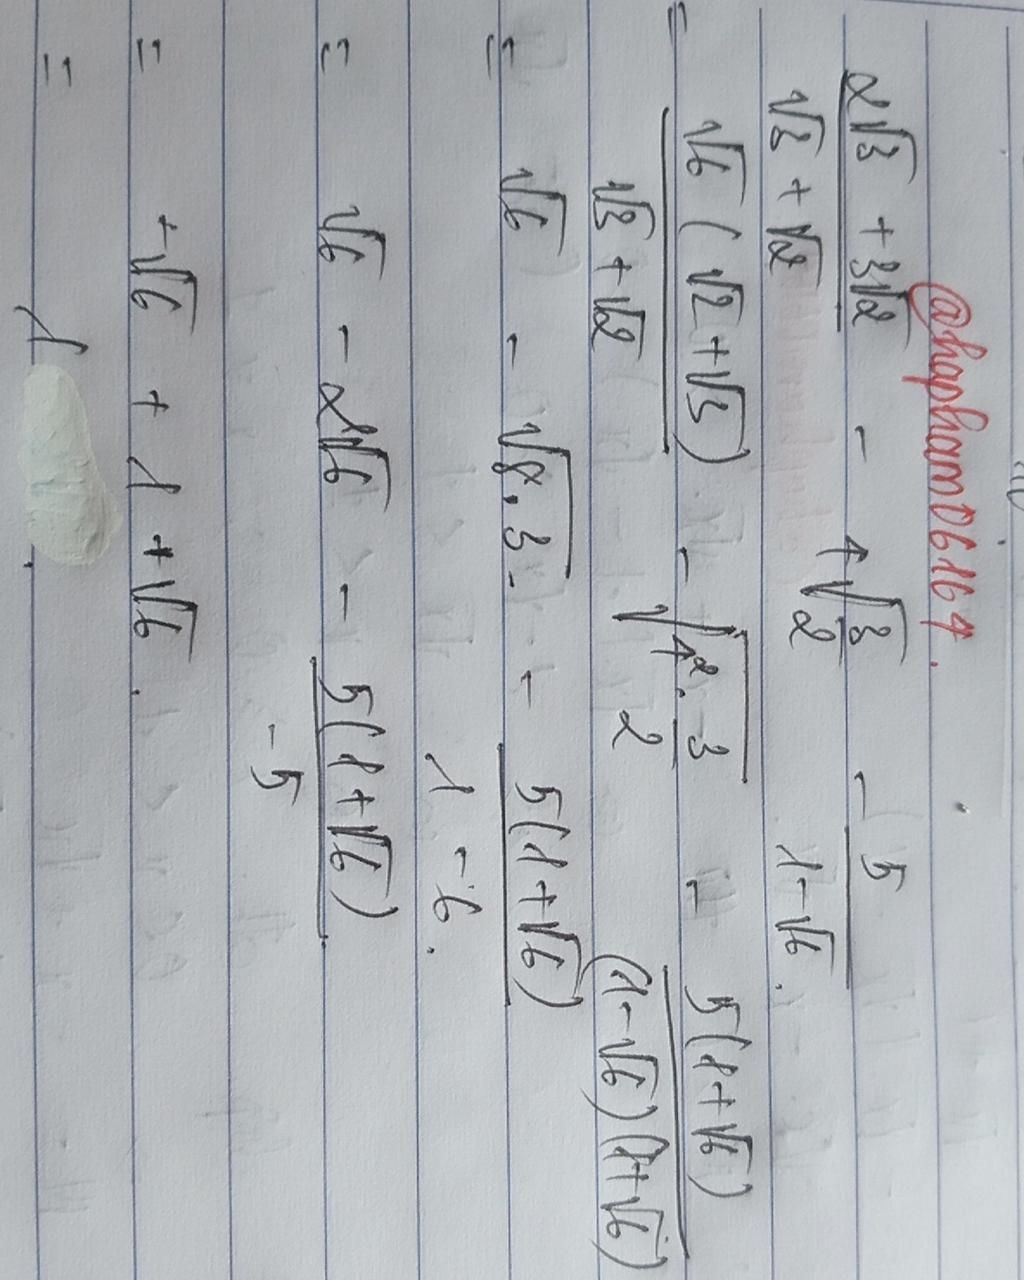 @hapham06164.
(2√3 + 3√2)/(√3 + √2) - 4√(3/2) - 5/(1-√6).
= √6(√2+√3)/(√3+√2) - √(4².3/2) - 5(1+√6)/((1-√6)(1+√6))
= √6 - √(8.3). - 5(1+√6)/(1-6).
= √6 - 2√6 - 5(1+√6)/(-5).
= -√6 + 1 + √6.
= 1 .